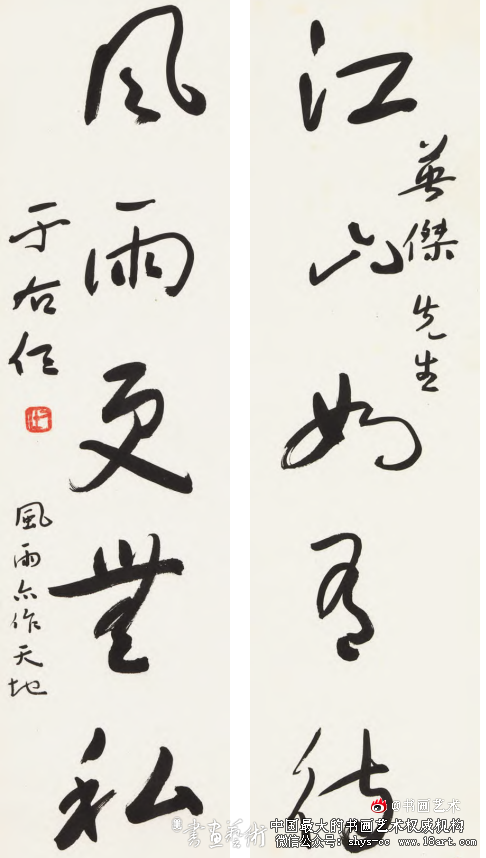 江山如有待
英傑先生
風雨更無私
于右任
風雨亦作天地
書畫藝術
@书画艺术
中国最大的书画艺术权威机构
微信公众号：shys-cc www.18art.com